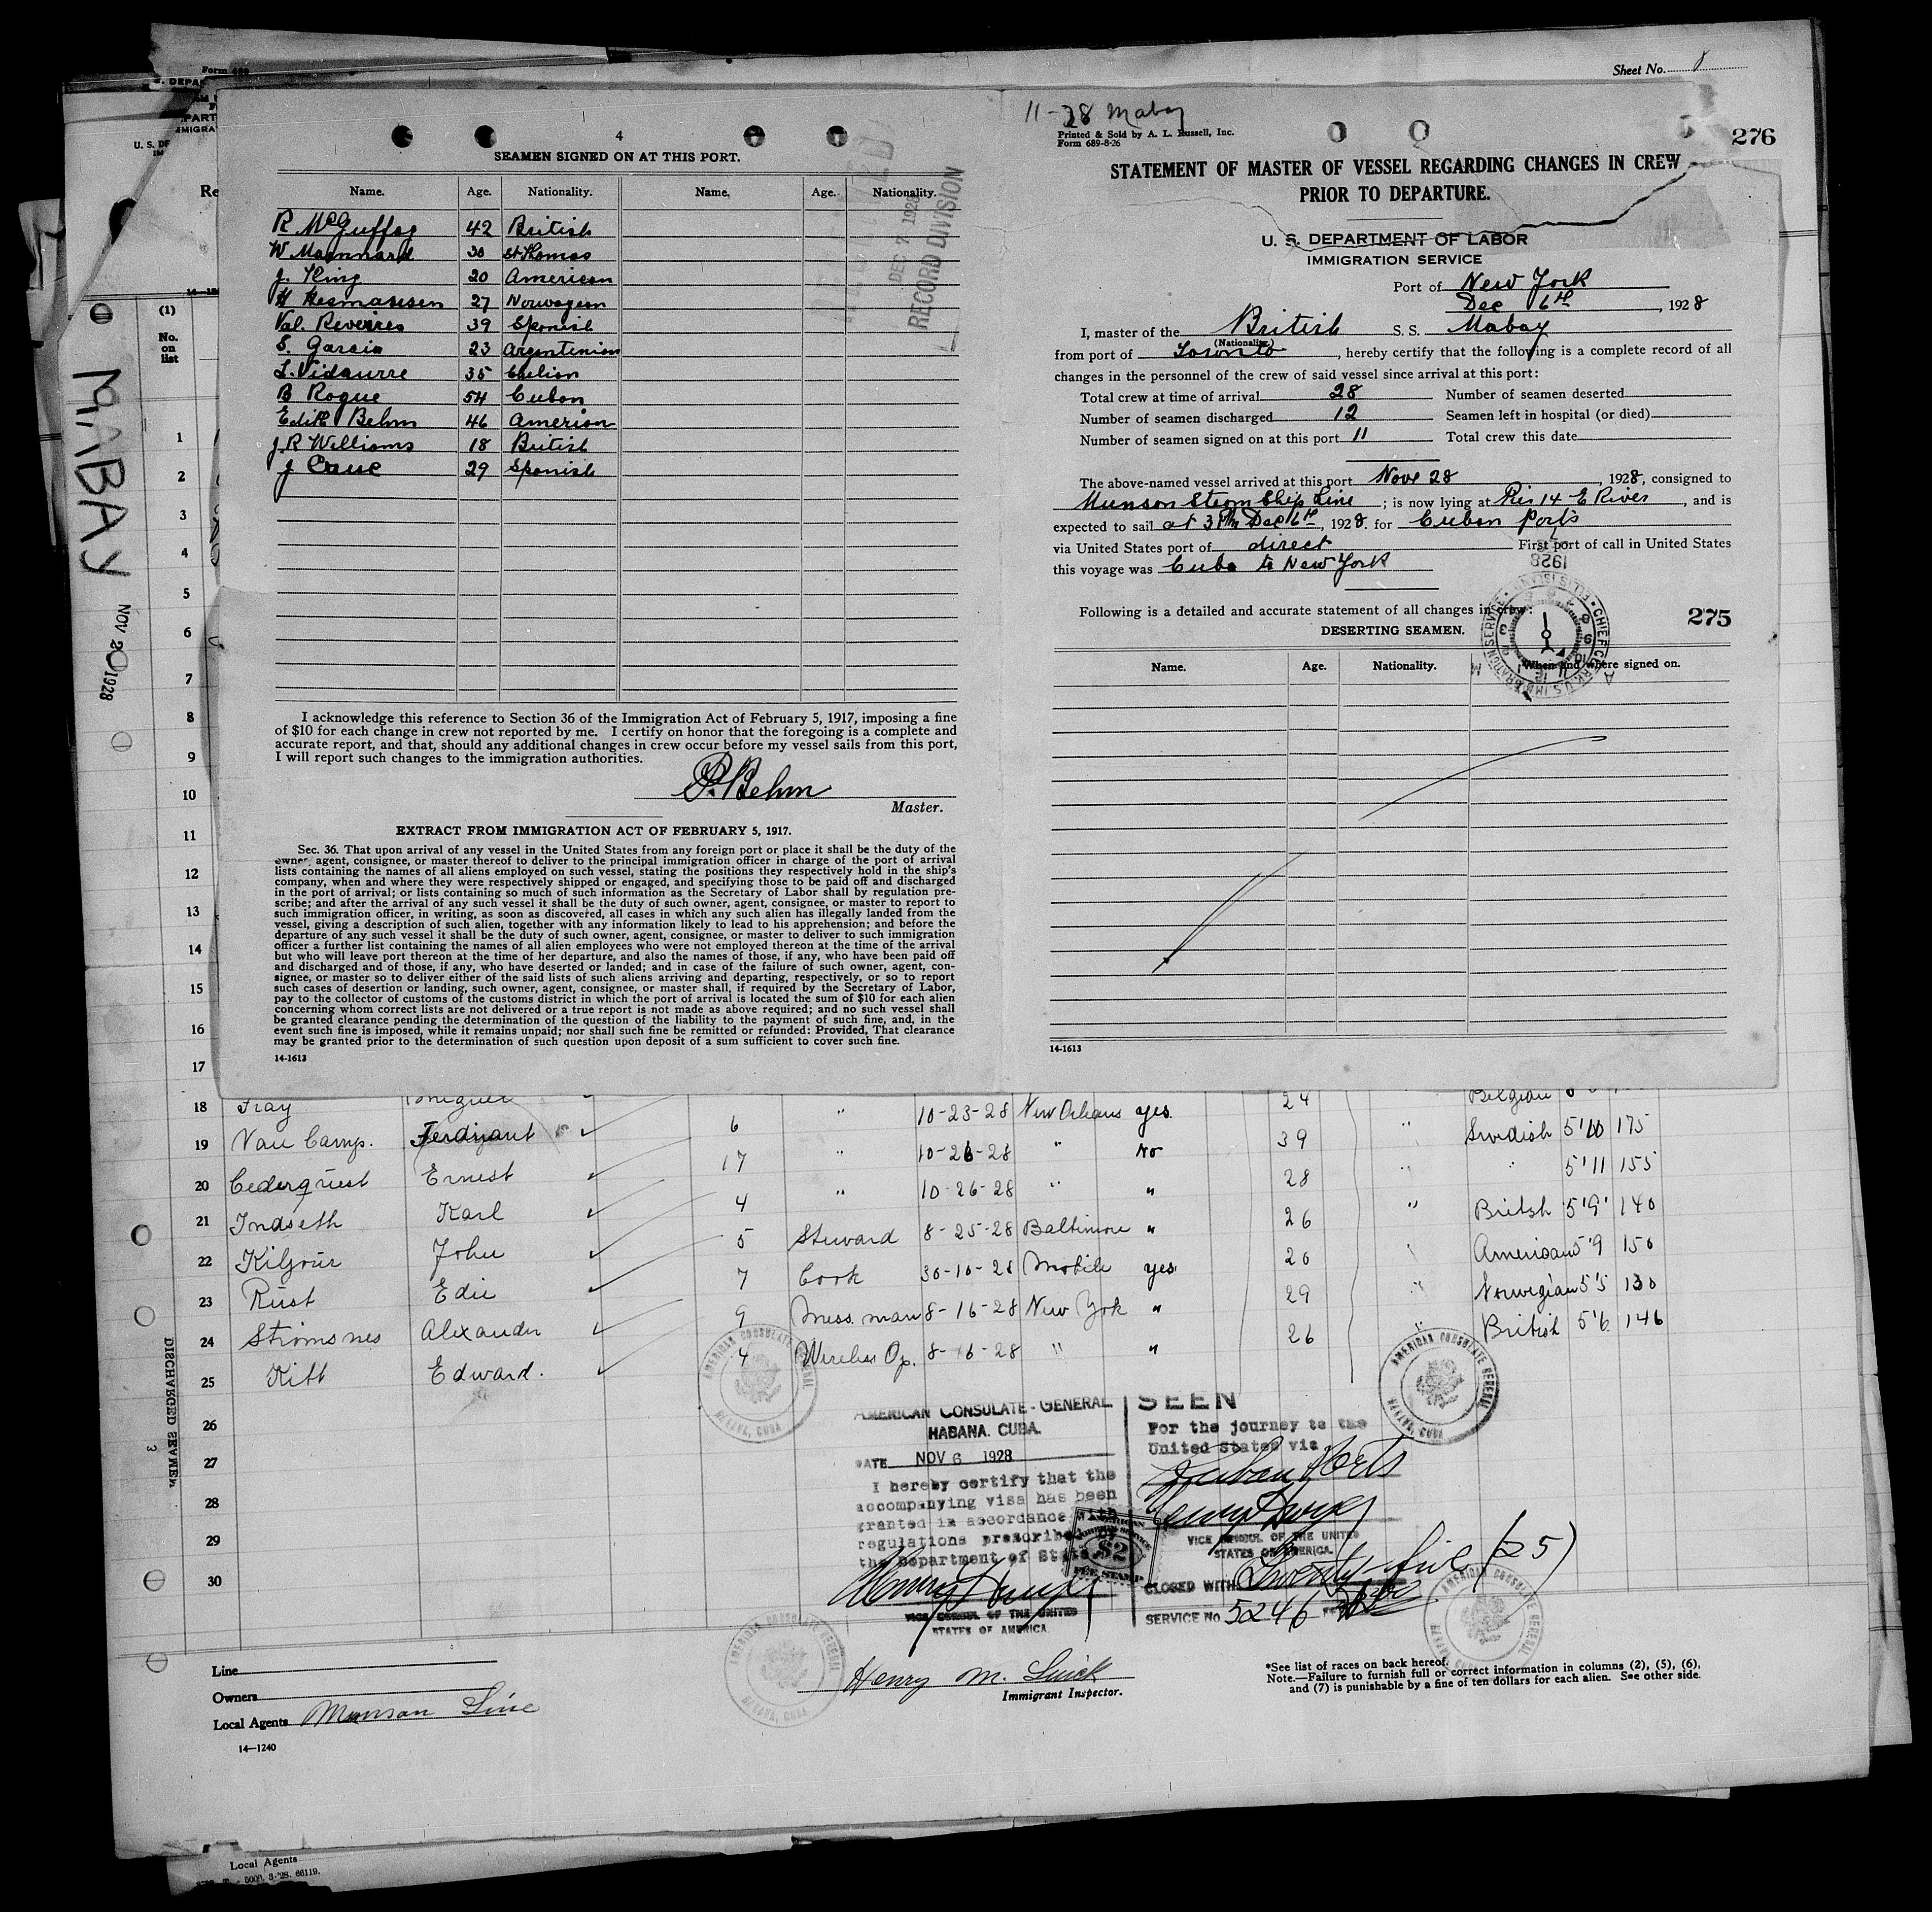 Sheet No. 8
Form 689
U. S. DE
MABAY
NOV 28 1928
DISCHARGED SEAMEN
3
4
SEAMEN SIGNED ON AT THIS PORT.
Name. Age. Nationality. Name. Age. Nationality.
R. McGuffog 42 British
W Mainnard 30 St Thomas
J. King 20 American
H Hesmansen 27 Norwagean
Val. Reveires 39 Spanish
S. Garcia 23 Argentenian
L. Vidaurre 35 Chelian
B Rogue 54 Cuban
Edith Behm 46 Amerian
J.R Williams 18 British
J 29 Spanish
RECEIVED
DEC 7 1928
RECORD DIVISION
I acknowledge this reference to Section 36 of the Immigration Act of February 5, 1917, imposing a fine
of $10 for each change in crew not reported by me. I certify on honor that the foregoing is a complete and
accurate report, and that, should any additional changes in crew occur before my vessel sails from this port,
I will report such changes to the immigration authorities.
P. Behm
Master.
EXTRACT FROM IMMIGRATION ACT OF FEBRUARY 5, 1917.
Sec. 36. That upon arrival of any vessel in the United States from any foreign port or place it shall be the duty of the
owner, agent, consignee, or master thereof to deliver to the principal immigration officer in charge of the port of arrival
lists containing the names of all aliens employed on such vessel, stating the positions they respectively hold in the ship's
company, when and where they were respectively shipped or engaged, and specifying those to be paid off and discharged
in the port of arrival; or lists containing so much of such information as the Secretary of Labor shall by regulation pre-
scribe; and after the arrival of any such vessel it shall be the duty of such owner, agent, consignee, or master to report to
such immigration officer, in writing, as soon as discovered, all cases in which any such alien has illegally landed from the
vessel, giving a description of such alien, together with any information likely to lead to his apprehension; and before the
departure of any such vessel it shall be the duty of such owner, agent, consignee, or master to deliver to such immigration
officer a further list containing the names of all alien employees who were not employed thereon at the time of the arrival
but who will leave port thereon at the time of her departure, and also the names of those, if any, who have been paid off
and discharged and of those, if any, who have deserted or landed; and in case of the failure of such owner, agent, con-
signee, or master so to deliver either of the said lists of such aliens arriving and departing, respectively, or so to report
such cases of desertion or landing, such owner, agent, consignee, or master shall, if required by the Secretary of Labor,
pay to the collector of customs of the customs district in which the port of arrival is located the sum of $10 for each alien
concerning whom correct lists are not delivered or a true report is not made as above required; and no such vessel shall
be granted clearance pending the determination of the question of the liability to the payment of such fine, and, in the
event such fine is imposed, while it remains unpaid; nor shall such fine be remitted or refunded: Provided, That clearance
may be granted prior to the determination of such question upon deposit of a sum sufficient to cover such fine.
14-1613
11-28 Mabay
Printed & Sold by A. L. Russell, Inc.
Form 689-8-26
276
STATEMENT OF MASTER OF VESSEL REGARDING CHANGES IN CREW
PRIOR TO DEPARTURE.
U. S. DEPARTMENT OF LABOR
IMMIGRATION SERVICE
Port of New York
Dec 6th, 1928
I, master of the British S. S. Mabay
(Nationality)
from port of Toronto, hereby certify that the following is a complete record of all
changes in the personnel of the crew of said vessel since arrival at this port:
Total crew at time of arrival 28 Number of seamen deserted
Number of seamen discharged 12 Seamen left in hospital (or died)
Number of seamen signed on at this port 11 Total crew this date
The above-named vessel arrived at this port Nove 28, 1928, consigned to
Munson Steam Ship Line; is now lying at Pier 14 E River, and is
expected to sail at 3 PM Dec 6th, 1928. for Cuban ports
via United States port of direct First port of call in United States
this voyage was Cuba to New York
1928
Following is a detailed and accurate statement of all changes in crew:
275
DESERTING SEAMEN.
CHIEF CLERK U.S. IMMIGRATION SERVICE ELLIS ISLAND
Name. Age. Nationality. When and where signed on.
14-1613
(1)
No.
on
list
1
2
3
4
5
6
7
8
9
10
11
12
13
14
15
16
17
18 Fray Miguel 6 " 10-23-28 New Orleans yes 24 Belgian
19 Van Camp. Ferdinant 17 " 10-26-28 " No 39 " Swedish 5'10 175
20 Cederquist Ernest 4 " 10-26-28 " " 28 " " 5'11 155
21 Indseth Karl 5 Steward 8-25-28 Baltimore " 26 " British 5'9" 140
22 Kilgour John 7 Cook 30-10-28 Mobile yes 20 " American 5'9 150
23 Rust Edie 9 Mess man 8-16-28 New York " 29 " Norwegian 5'5 130
24 Stromsnes Alexander 4 Wireless Op. 8-16-28 " " 26 " British 5'6 146
25 Kitt Edward.
26
27
28
29
30
AMERICAN CONSULATE GENERAL HAVANA, CUBA
AMERICAN CONSULATE GENERAL HAVANA, CUBA
AMERICAN CONSULATE-GENERAL
HABANA. CUBA.
DATE NOV 6 1928
I hereby certify that the
accompanying visa has been
granted in accordance with
regulations prescribed by
the Department of State.
VICE CONSUL OF THE UNITED
STATES OF AMERICA
AMERICAN FOREIGN SERVICE $2 FEE STAMP
SEEN
For the journey to the
United States via
Cuban Ports
VICE CONSUL OF THE UNITED
STATES OF AMERICA.
CLOSED WITH Twenty-five (25)
SERVICE No 5246
AMERICAN CONSULATE GENERAL HAVANA, CUBA
AMERICAN CONSULATE GENERAL HAVANA, CUBA
Line
Owners
Local Agents Munson Line
14—1240
Henry M.
Immigrant Inspector.
*See list of races on back hereof.
Note.—Failure to furnish full or correct information in columns (2), (5), (6),
and (7) is punishable by a fine of ten dollars for each alien. See other side.
Local Agents
5000. 3-'28. 66119.